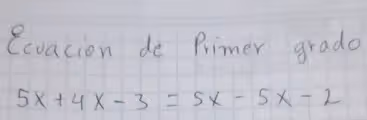 Ecuacion de Primer grado
5x + 4x - 3 = 5x - 5x - 2